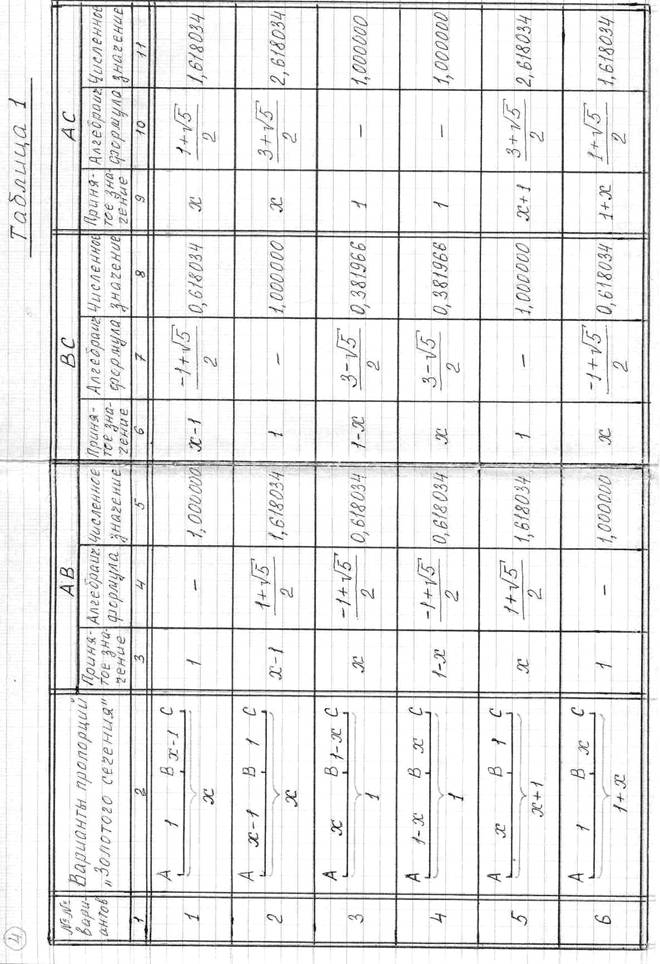 4
Таблица 1
№№ вари- антов
Варианты пропорций „Золотого сечения"
AB
BC
AC
Приня- тое зна- чение
Алгебраич. формула
Численное значение
Приня- тое зна- чение
Алгебраич. формула
Численное значение
Приня- тое зна- чение
Алгебраич. формула
Численное значение
1 2 3 4 5 6 7 8 9 10 11
1 A 1 B x-1 C x 1 – 1,000000 x-1 -1+√5/2 0,618034 x 1+√5/2 1,618034
2 A x-1 B 1 C x x-1 1+√5/2 1,618034 1 – 1,000000 x 3+√5/2 2,618034
3 A x B 1-x C 1 x -1+√5/2 0,618034 1-x 3-√5/2 0,381966 1 – 1,000000
4 A 1-x B x C 1 1-x -1+√5/2 0,618034 x 3-√5/2 0,381966 1 – 1,000000
5 A x B 1 C x+1 x 1+√5/2 1,618034 1 – 1,000000 x+1 3+√5/2 2,618034
6 A 1 B x C 1+x 1 – 1,000000 x -1+√5/2 0,618034 1+x 1+√5/2 1,618034